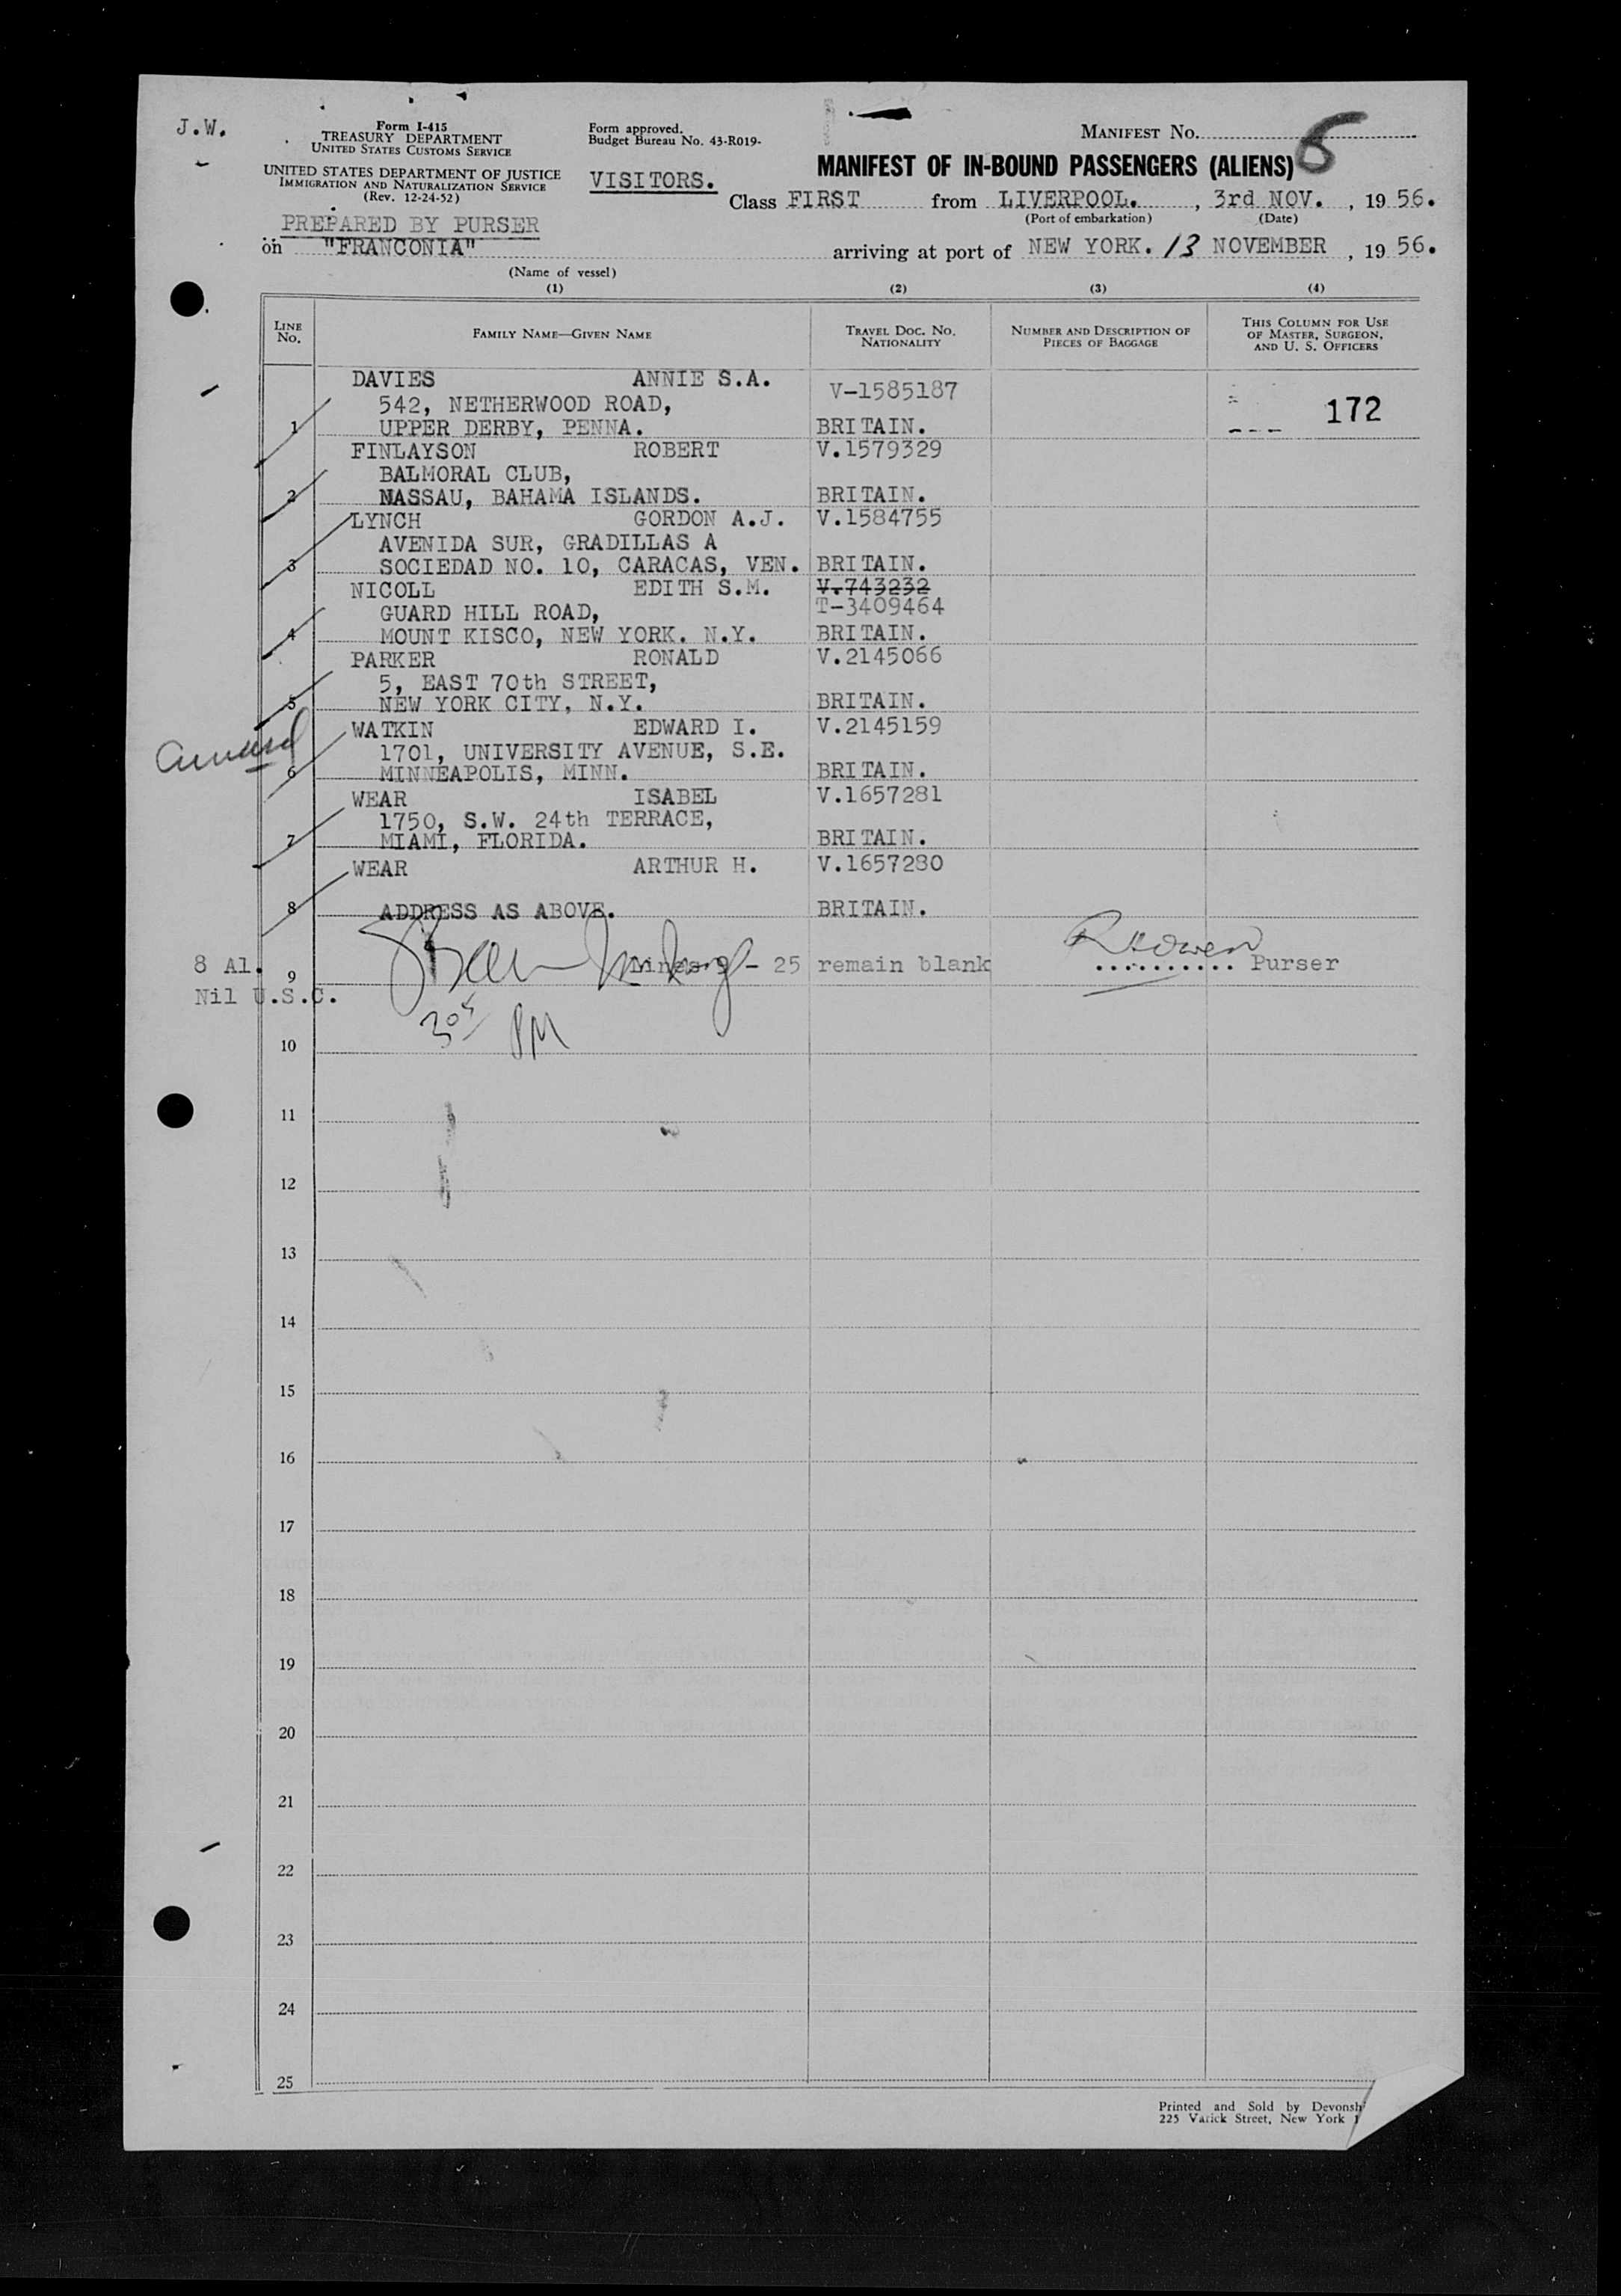 J.W.
Form I-415
TREASURY DEPARTMENT
UNITED STATES CUSTOMS SERVICE
UNITED STATES DEPARTMENT OF JUSTICE
IMMIGRATION AND NATURALIZATION SERVICE
(Rev. 12-24-52)
Form approved.
Budget Bureau No. 43-R019-
VISITORS.
MANIFEST No. 6
MANIFEST OF IN-BOUND PASSENGERS (ALIENS)
Class FIRST from LIVERPOOL. , 3rd NOV. , 19 56.
(Port of embarkation) (Date)
PREPARED BY PURSER
on "FRANCONIA" arriving at port of NEW YORK. 13 NOVEMBER , 19 56.
(Name of vessel)
(1) (2) (3) (4)
LINE No. FAMILY NAME—GIVEN NAME TRAVEL DOC. NO. NATIONALITY NUMBER AND DESCRIPTION OF PIECES OF BAGGAGE THIS COLUMN FOR USE OF MASTER, SURGEON, AND U. S. OFFICERS
DAVIES ANNIE S.A. V-1585187
542, NETHERWOOD ROAD, 172
1 UPPER DERBY, PENNA. BRITAIN.
FINLAYSON ROBERT V.1579329
BALMORAL CLUB,
2 NASSAU, BAHAMA ISLANDS. BRITAIN.
LYNCH GORDON A.J. V.1584755
AVENIDA SUR, GRADILLAS A
3 SOCIEDAD NO. 10, CARACAS, VEN. BRITAIN.
NICOLL EDITH S.M. V.743232
GUARD HILL ROAD, T-3409464
4 MOUNT KISCO, NEW YORK. N.Y. BRITAIN.
PARKER RONALD V.2145066
5, EAST 70th STREET,
5 NEW YORK CITY, N.Y. BRITAIN.
WATKIN EDWARD I. V.2145159
1701, UNIVERSITY AVENUE, S.E.
6 MINNEAPOLIS, MINN. BRITAIN.
WEAR ISABEL V.1657281
1750, S.W. 24th TERRACE,
7 MIAMI, FLORIDA. BRITAIN.
WEAR ARTHUR H. V.1657280
8 ADDRESS AS ABOVE. BRITAIN.
8 Al. 9 Lines 9 - 25 remain blank .......... Purser
Nil U.S.C.
PM
10
11
12
13
14
15
16
17
18
19
20
21
22
23
24
25
Printed and Sold by
225 Varick Street, New York